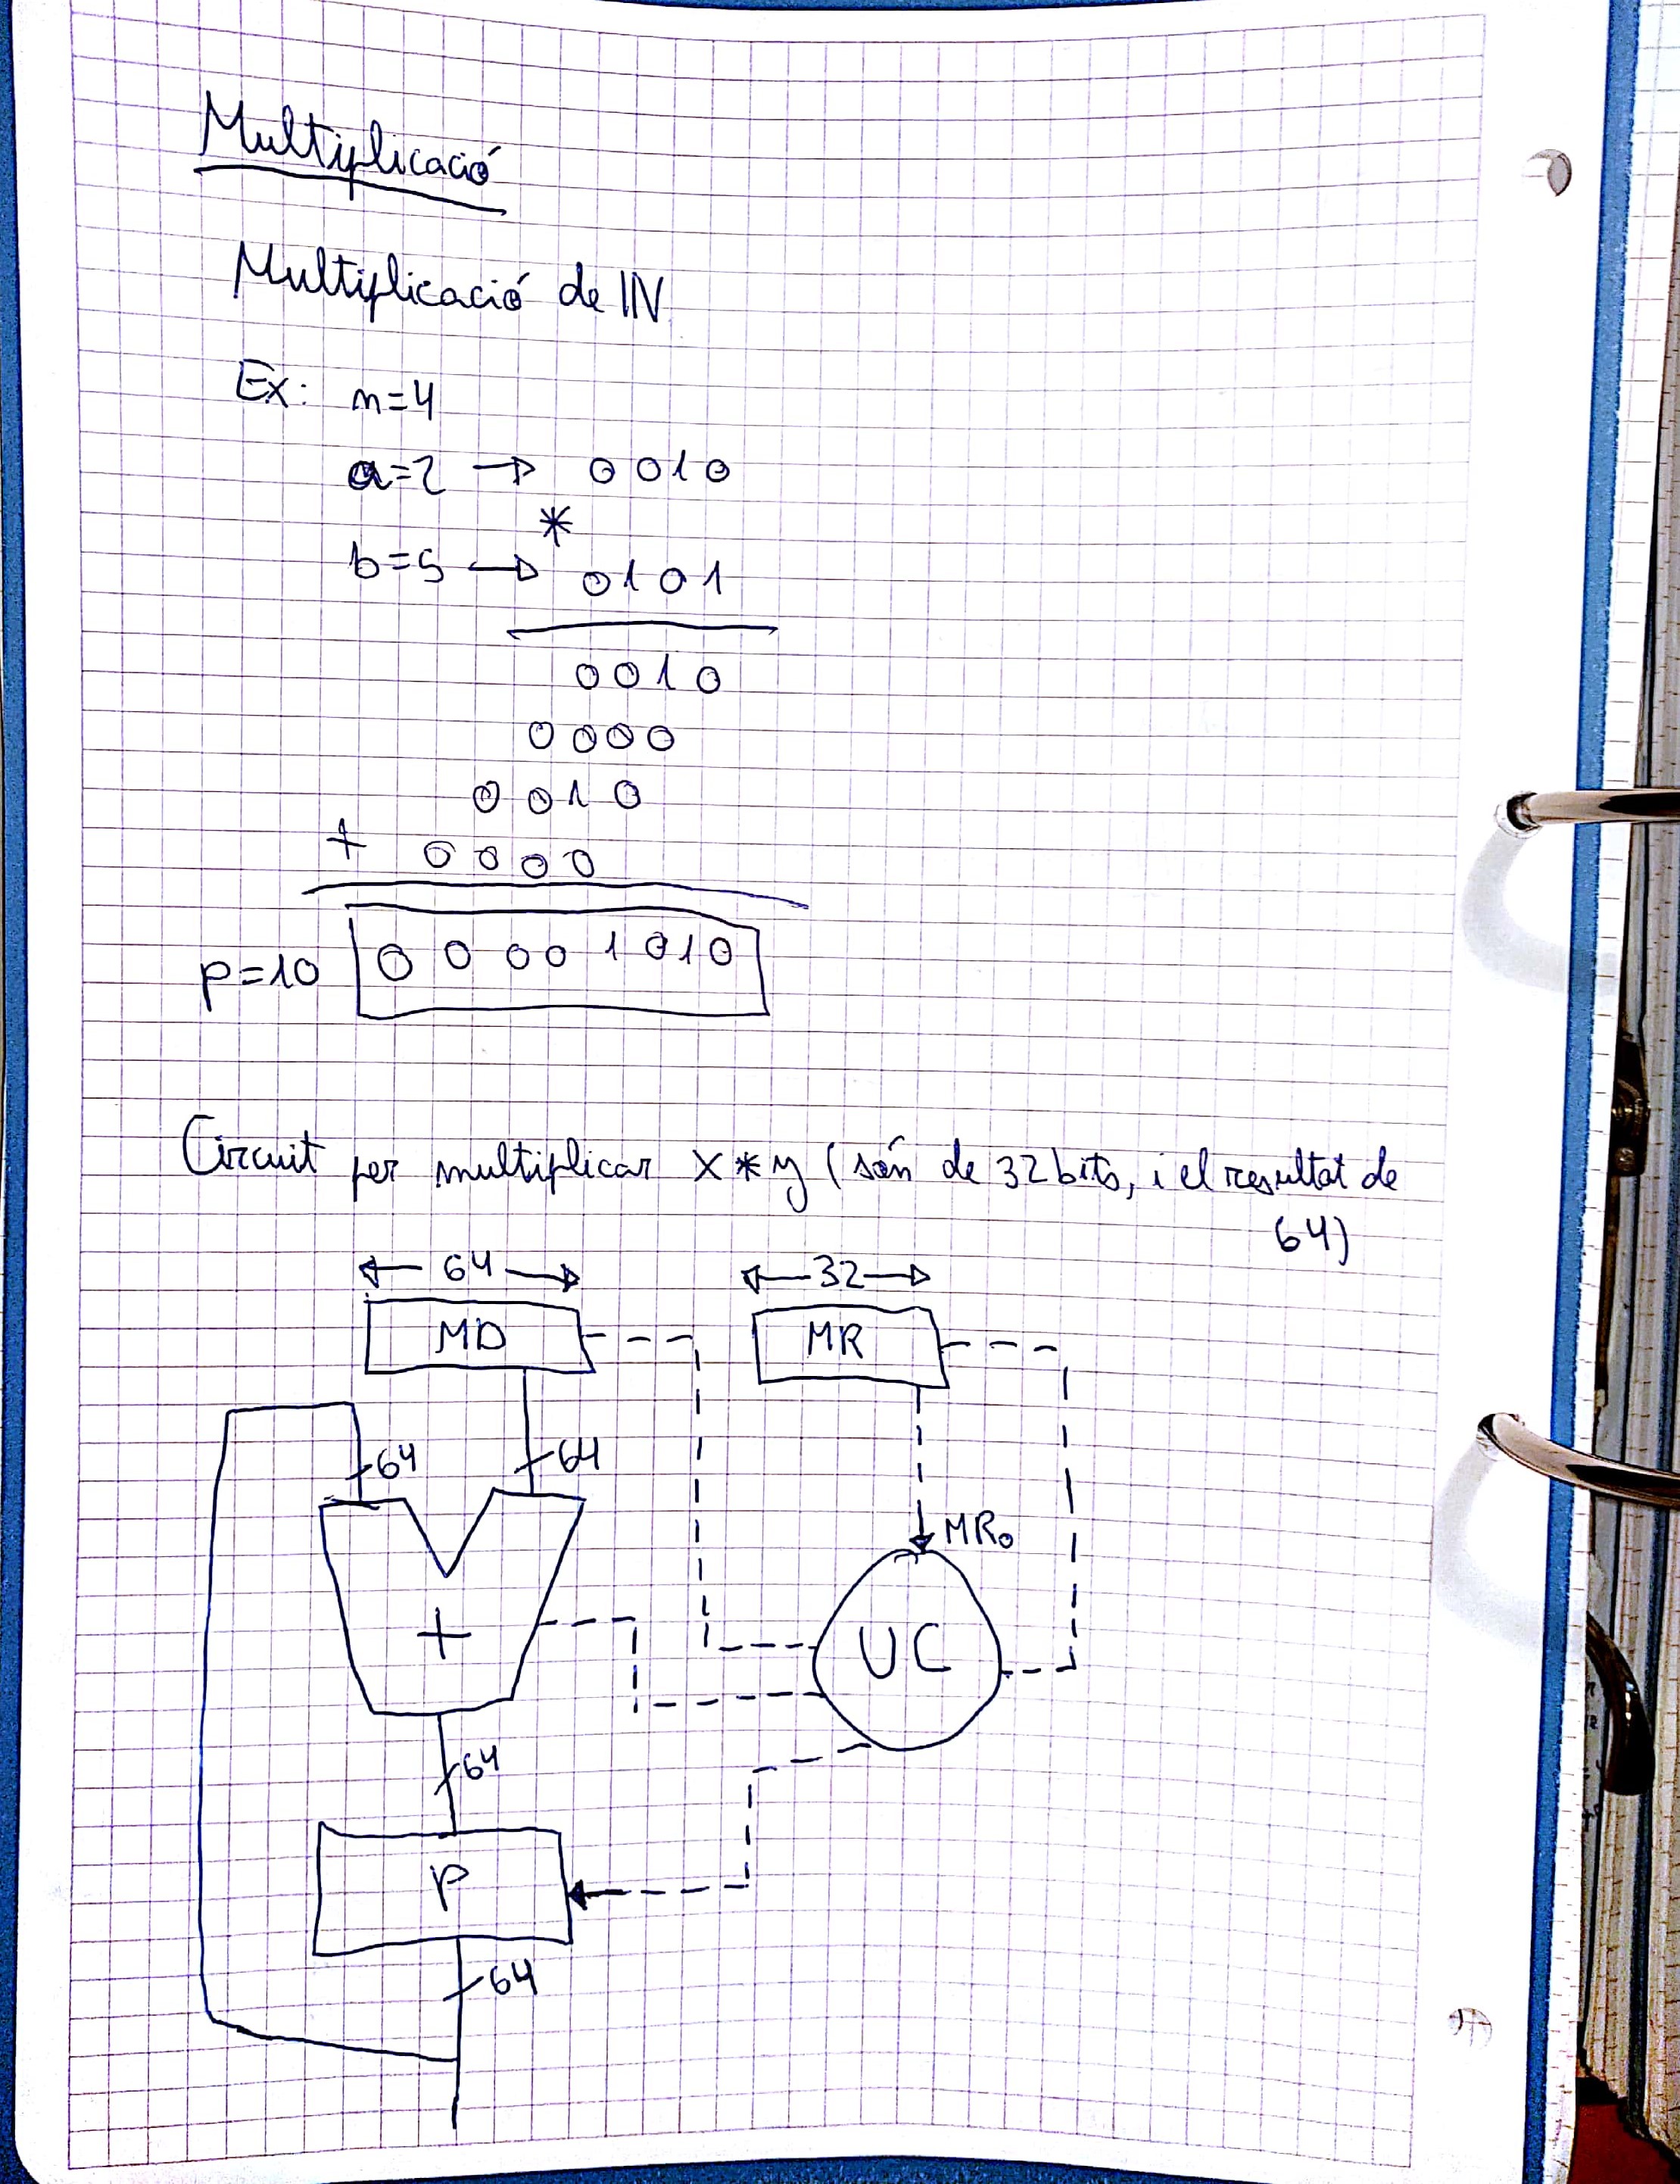 Multiplicació
Multiplicació de IN
Ex: n=4
a=2 → 0010
*
b=5 → 0101
0010
0000
0010
+ 0000
p=10 00001010
Circuit per multiplicar x*y (són de 32 bits, i el resultat de
64)
64 32
MD MR
64 64
MR₀
+ UC
64
P
64